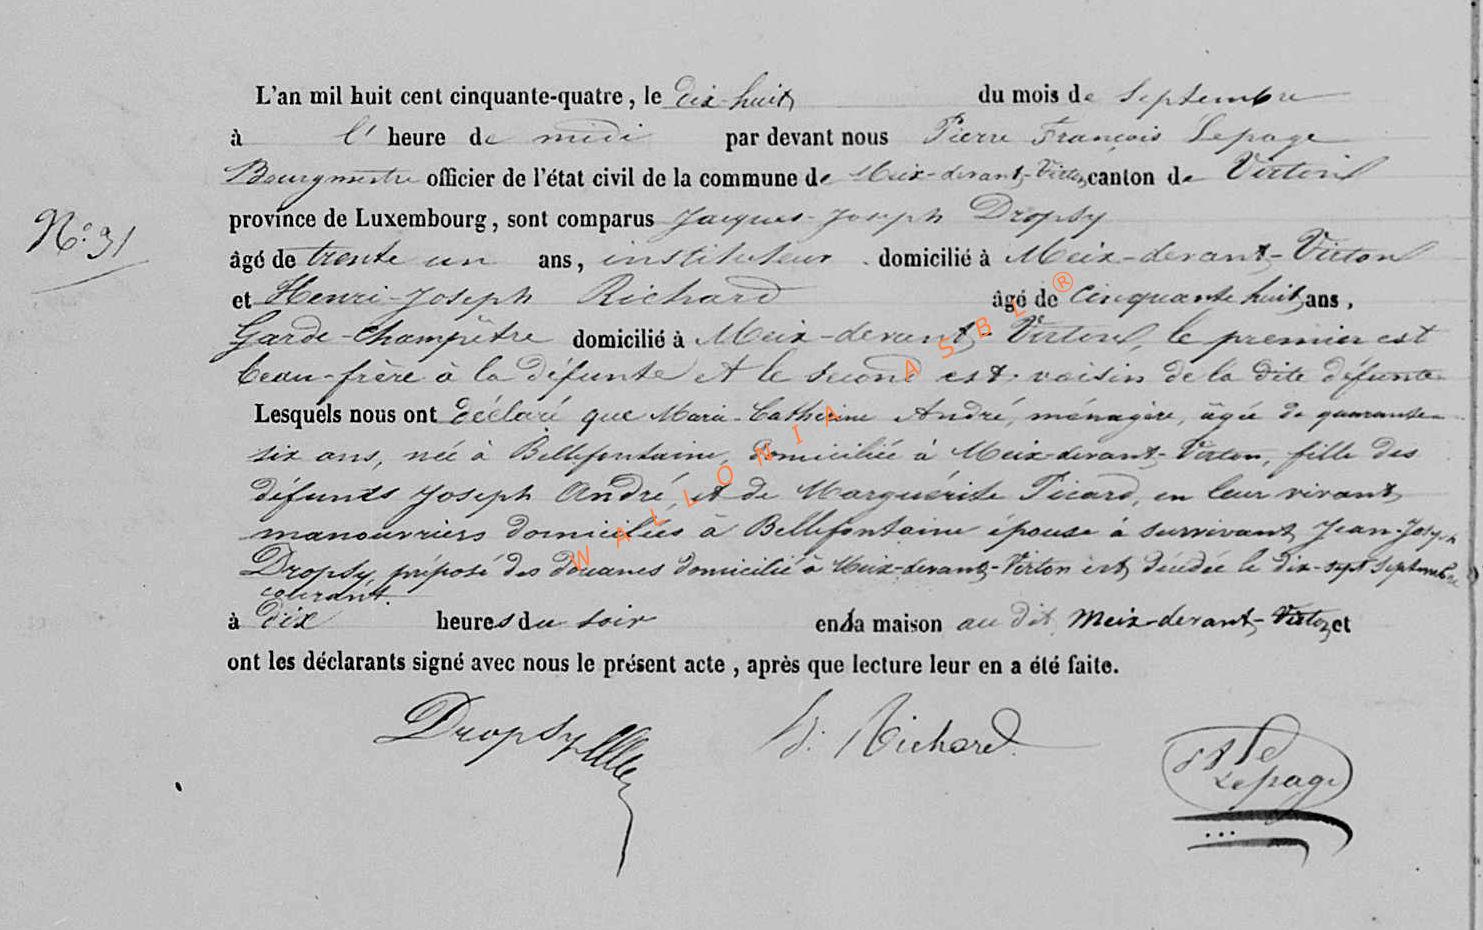 L'an mil huit cent cinquante-quatre, le dix-huit du mois de Septembre
à l'heure de midi par devant nous Pierre François Lepage
Bourgmestre officier de l'état civil de la commune de Meix-devant-Virton canton de Virton
province de Luxembourg, sont comparus Jacques-Joseph Dropsy
N° 31
âgé de trente un ans, instituteur domicilié à Meix-devant-Virton
et Henri-Joseph Richard âgé de cinquante huit ans,
Garde-champêtre domicilié à Meix-devant-Virton, le premier est
beau-frère à la défunte et le second est voisin de la dite défunte
Lesquels nous ont déclaré que Marie-Catherine André, ménagère, âgée de quarante
six ans, née à Bellefontaine, domiciliée à Meix-devant-Virton, fille des
défunts Joseph André, et de Marguérite Picard, en leur vivant
manouvriers domiciliés à Bellefontaine épouse à survivant Jean-Joseph
Dropsy, préposé des douanes domicilié à Meix-devant-Virton est décédée le dix-sept Septembre
courant.
à dix heures du soir en sa maison au dit Meix-devant-Virton et
ont les déclarants signé avec nous le présent acte, après que lecture leur en a été faite.
Dropsy
h. Richard
Lepage
WALLONIA ASBL ®